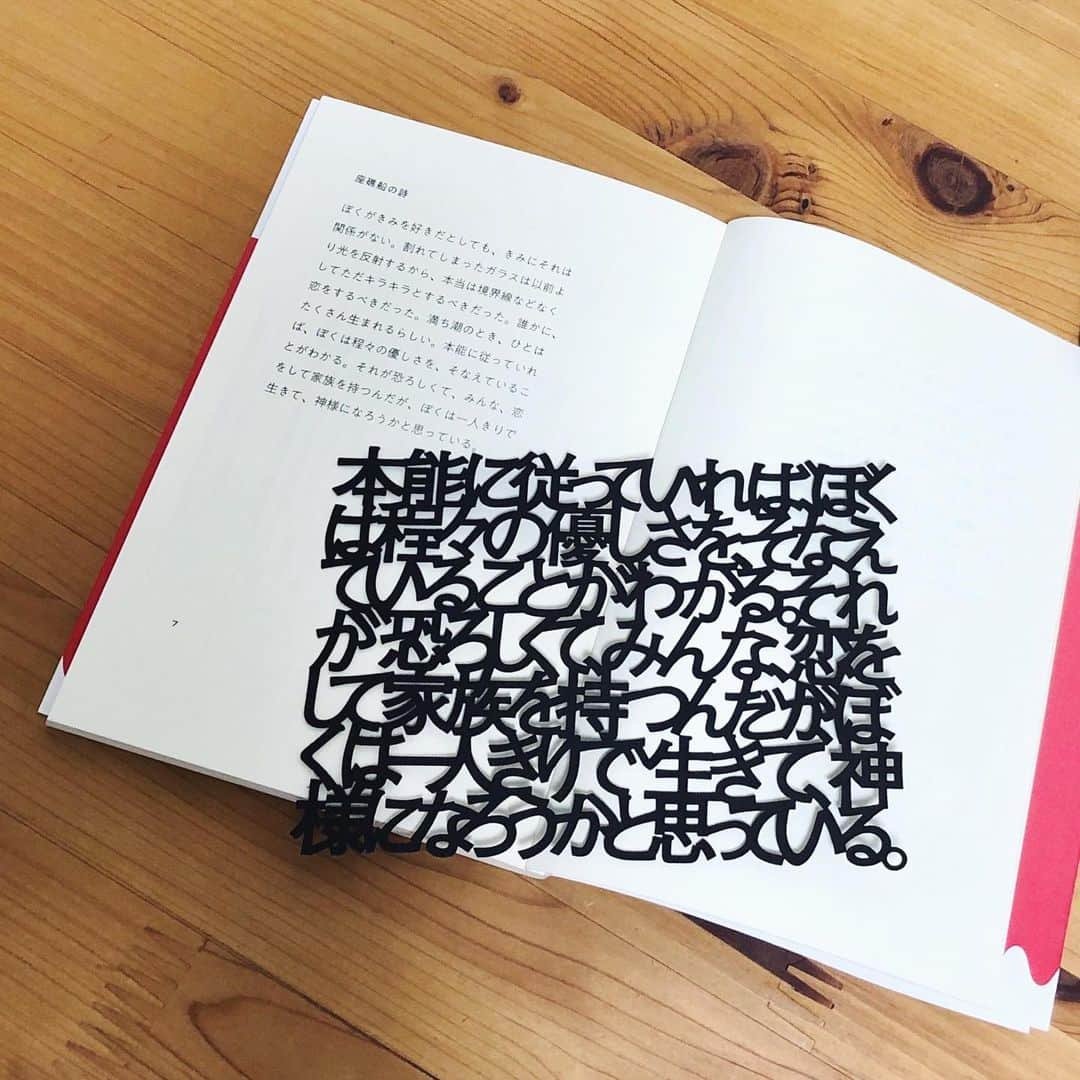 座礁船の詩
ぼくがきみを好きだとしても、きみにそれは
関係がない。割れてしまったガラスは以前よ
り光を反射するから、本当は境界線などなく
してただキラキラとするべきだった。誰かに、
恋をするべきだった。満ち潮のとき、ひとは
たくさん生まれるらしい。本能に従っていれ
ば、ぼくは程々の優しさを、そなえているこ
とがわかる。それが恐ろしくて、みんな、恋
をして家族を持つんだが、ぼくは一人きりで
生きて、神様になろうかと思っている。
7
本能に従っていればぼく
は程々の優しさをそなえ
ていることがわかる。それ
が恐ろしくてみんな、恋を
して家族を持つんだがぼ
くは一人きりで生きて、神
様になろうかと思っている。